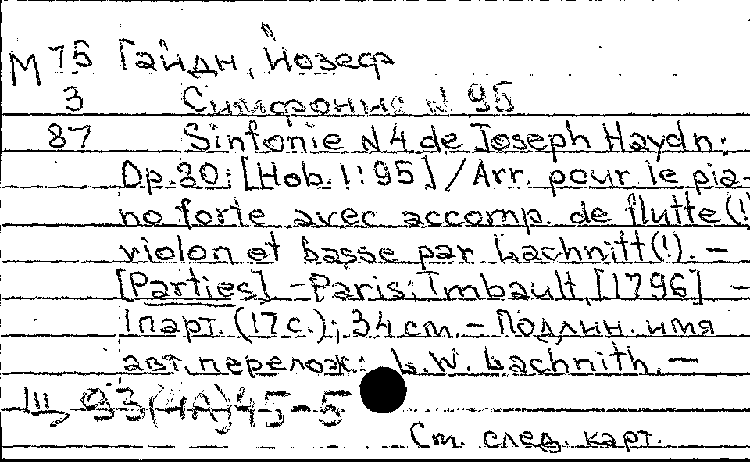 М 75 Гайдн, Йозеф
3 Симфония N 95
87 Sinfonie N4 de Joseph Haydn:
Op. 80: [Hob. I: 95] / Arr. pour le pia-
no forte avec accomp. de flutte(!)
violon et basse par Lachnitt(!). —
[Parties] - Paris: Imbault, [1796] —
1 парт. (17 с.); 34 cm. - Подлин. имя
авт. перелож.: L.W. Lachnith. —
Ш 93(4А)45-5
См. след. карт.